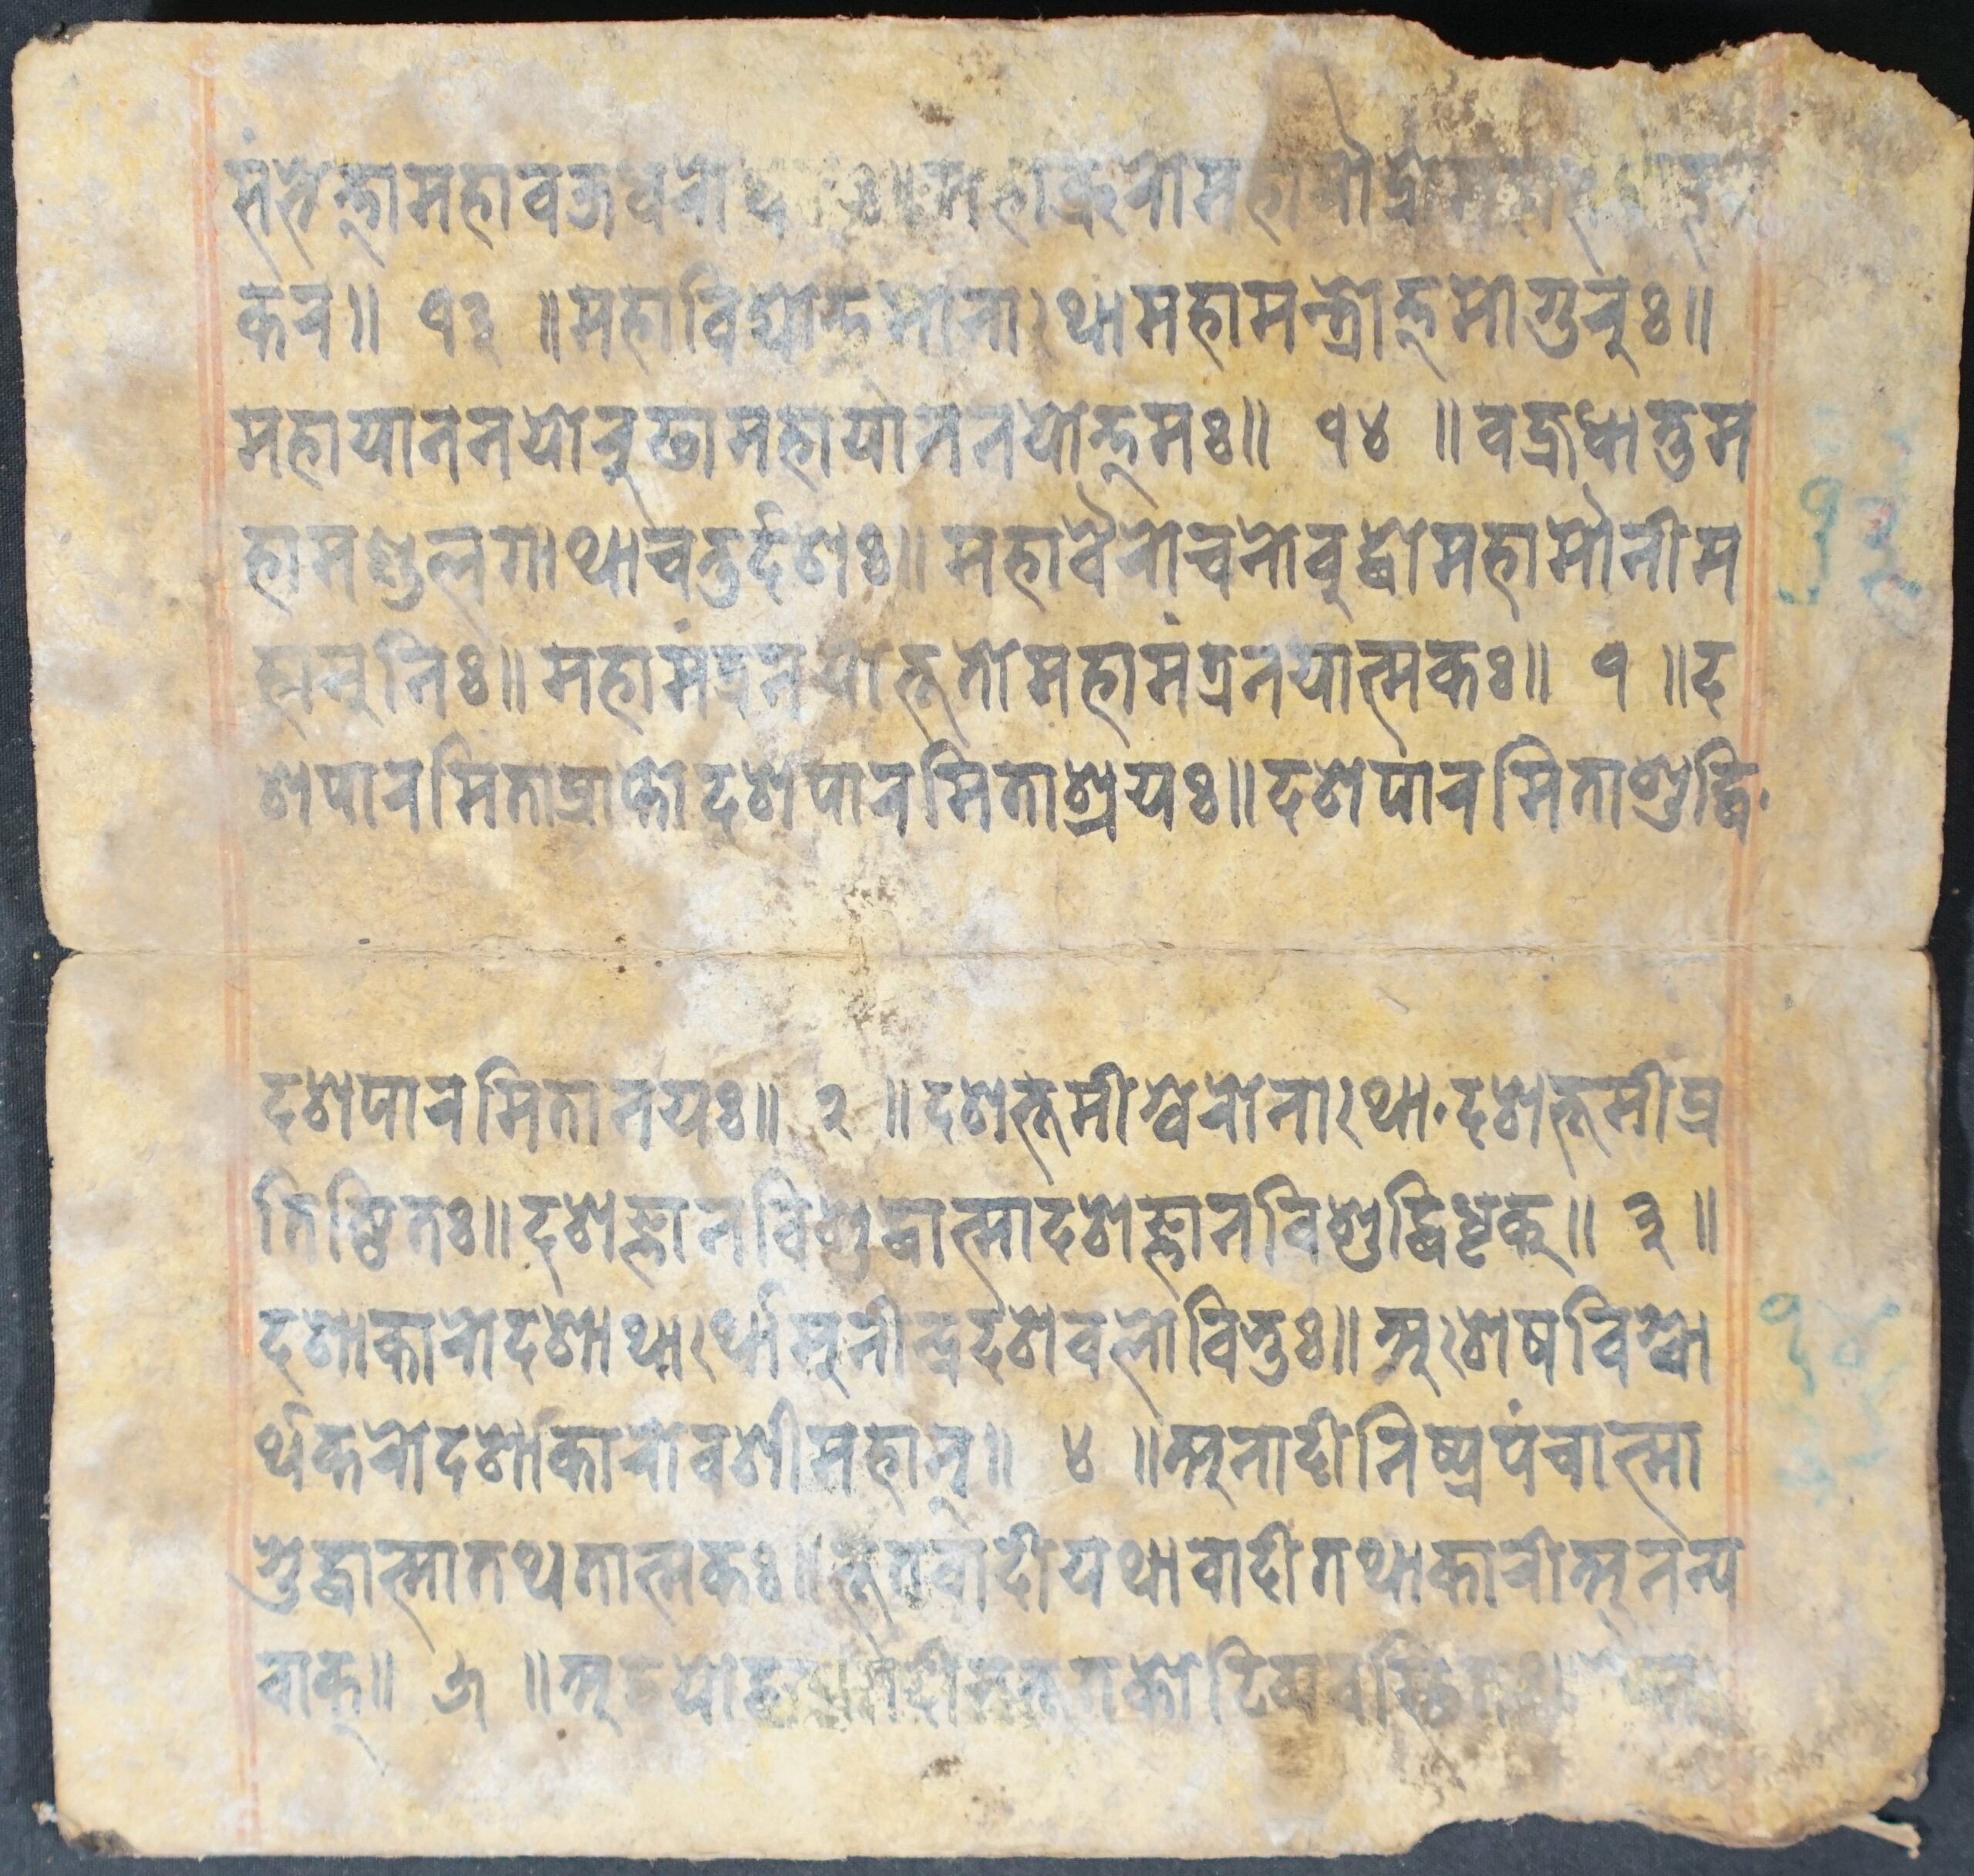 संभेत्तामहावज्रधरोघ ॥महाक्रूरोमहारौद्रोमहा
कर॥ १३ ॥महाविद्योत्तमोनाःथामहामन्त्रोत्तमोगुरुः॥
महायाननयोरुढामहायाननयोत्तमः॥ १४ ॥वज्रधातुम
हामण्डलगाथाचतुर्दशः॥महावैरोचनोबुद्धोमहामौनीम
हामुनिः॥महामंत्रनयोद्भूतोमहामंत्रनयात्मकः॥ १ ॥द
शपारमिताप्राप्तोदशपारमिताश्रयः॥दशपारमिताशुद्धि॰
दशपारमितानयः॥ २ ॥दशभूमीश्वरोनाःथा॰दशभूमीप्र
तिष्ठितः॥दशज्ञानविशुद्धात्मादशज्ञानविशुद्धिधृक्॥ ३ ॥
दशाकारोदशाथाःर्थामुनीन्द्रदशवलोविभुः॥अःशेषविश्वा
र्थकरोदशाकारोवशीमहान्॥ ४ ॥अनादीनिष्प्रपंचात्मा
शुद्धात्मातथतात्मकः॥भूतवादीयथावादीतथाकारीअनन्य
वाक्॥ ५ ॥अद्वयोद्वयवादीचभूतकोटिव्यवस्थितः॥
१३
१४